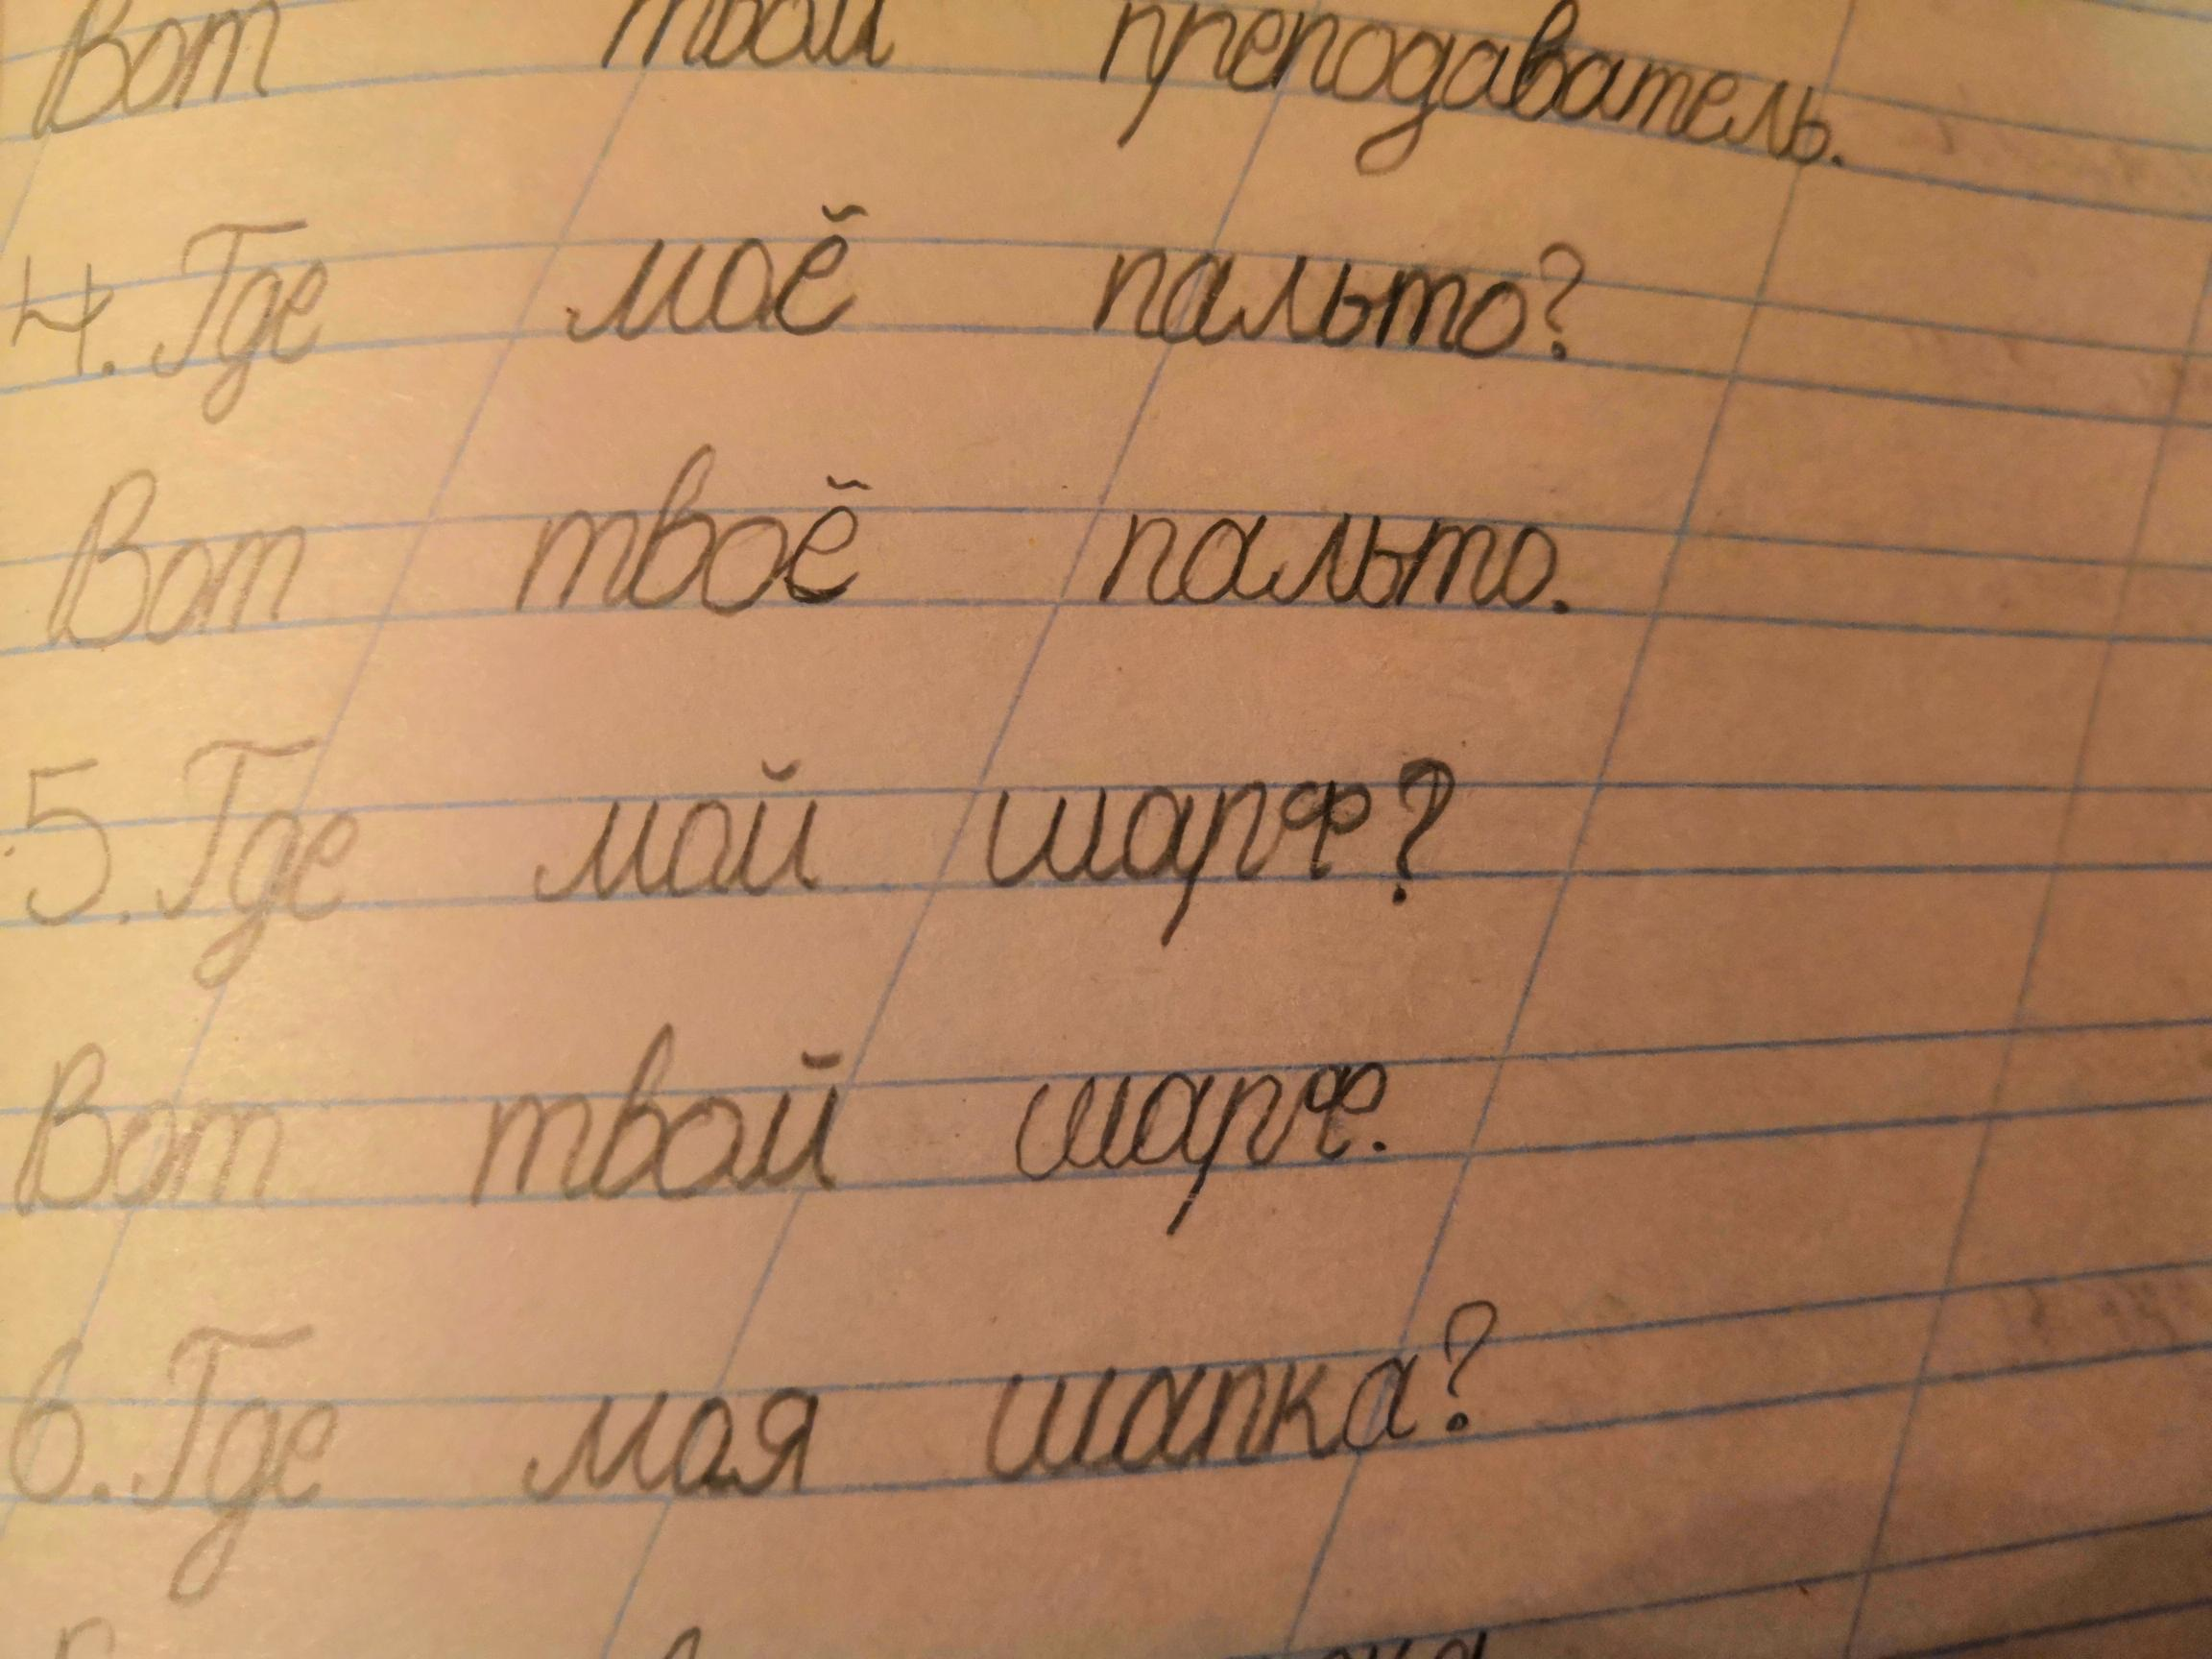 Вот твой преподаватель.
4. Где моё пальто?
Вот твоё пальто.
5. Где мой шарф?
Вот твой шарф.
6. Где моя шапка?